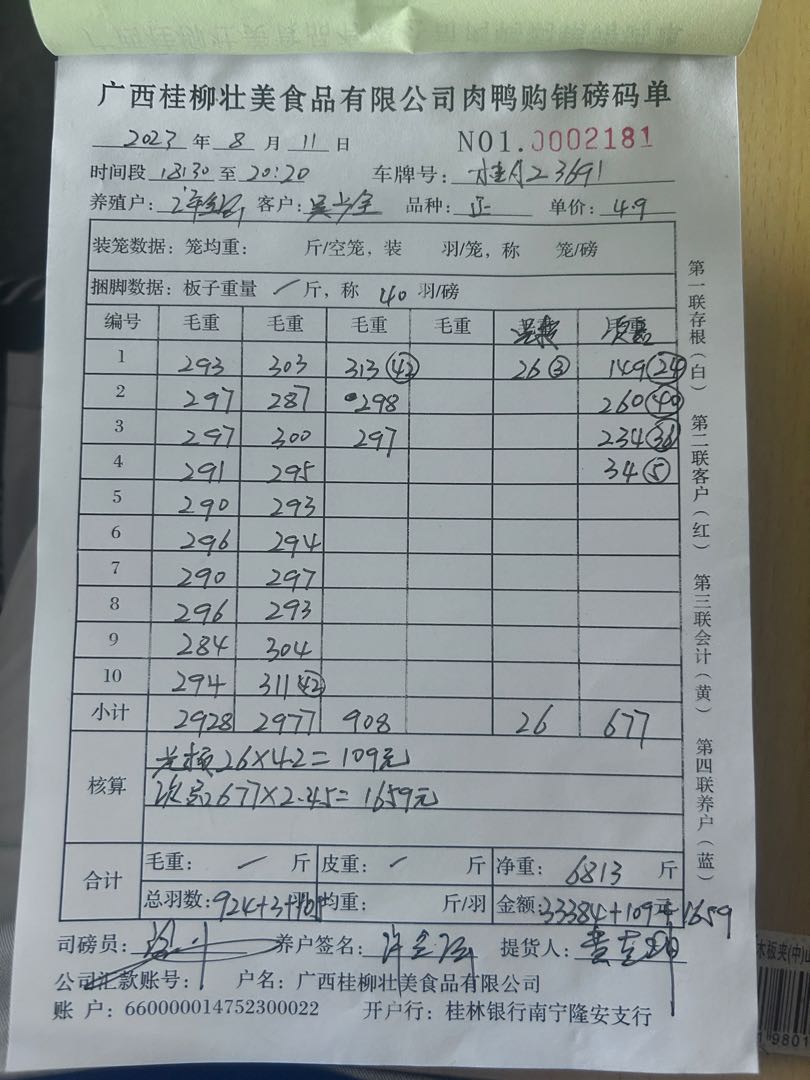 广西桂柳壮美食品有限公司肉鸭购销磅码单
2023 年 8 月 11 日 NO1.0002181
时间段 18:30 至 20:20 车牌号: 桂A23691
养殖户: 客户: 品种: 正 单价: 4.9
装笼数据: 笼均重: 斤/空笼, 装 羽/笼, 称 笼/磅
捆脚数据: 板子重量 / 斤, 称 40 羽/磅
编号 毛重 毛重 毛重 毛重
1 293 303 313 42 26 3 149 24
2 297 287 298 260 40
3 297 300 297 234 36
4 291 295 34 5
5 290 293
6 296 294
7 290 297
8 296 293
9 284 304
10 294 311 42
小计 2928 2977 908 26 677
核算 26×4.2=109元
次品677×2.45=1659元
合计 毛重: / 斤 皮重: / 斤 净重: 6813 斤
总羽数: 924+3+ 均重: 斤/羽 金额: 33384+109+1659
司磅员: 养户签名: 提货人:
公司汇款账号: 户名: 广西桂柳壮美食品有限公司
账 户: 660000014752300022 开户行: 桂林银行南宁隆安支行
第一联存根(白) 第二联客户(红) 第三联会计(黄) 第四联养户(蓝)
木板夹(中)